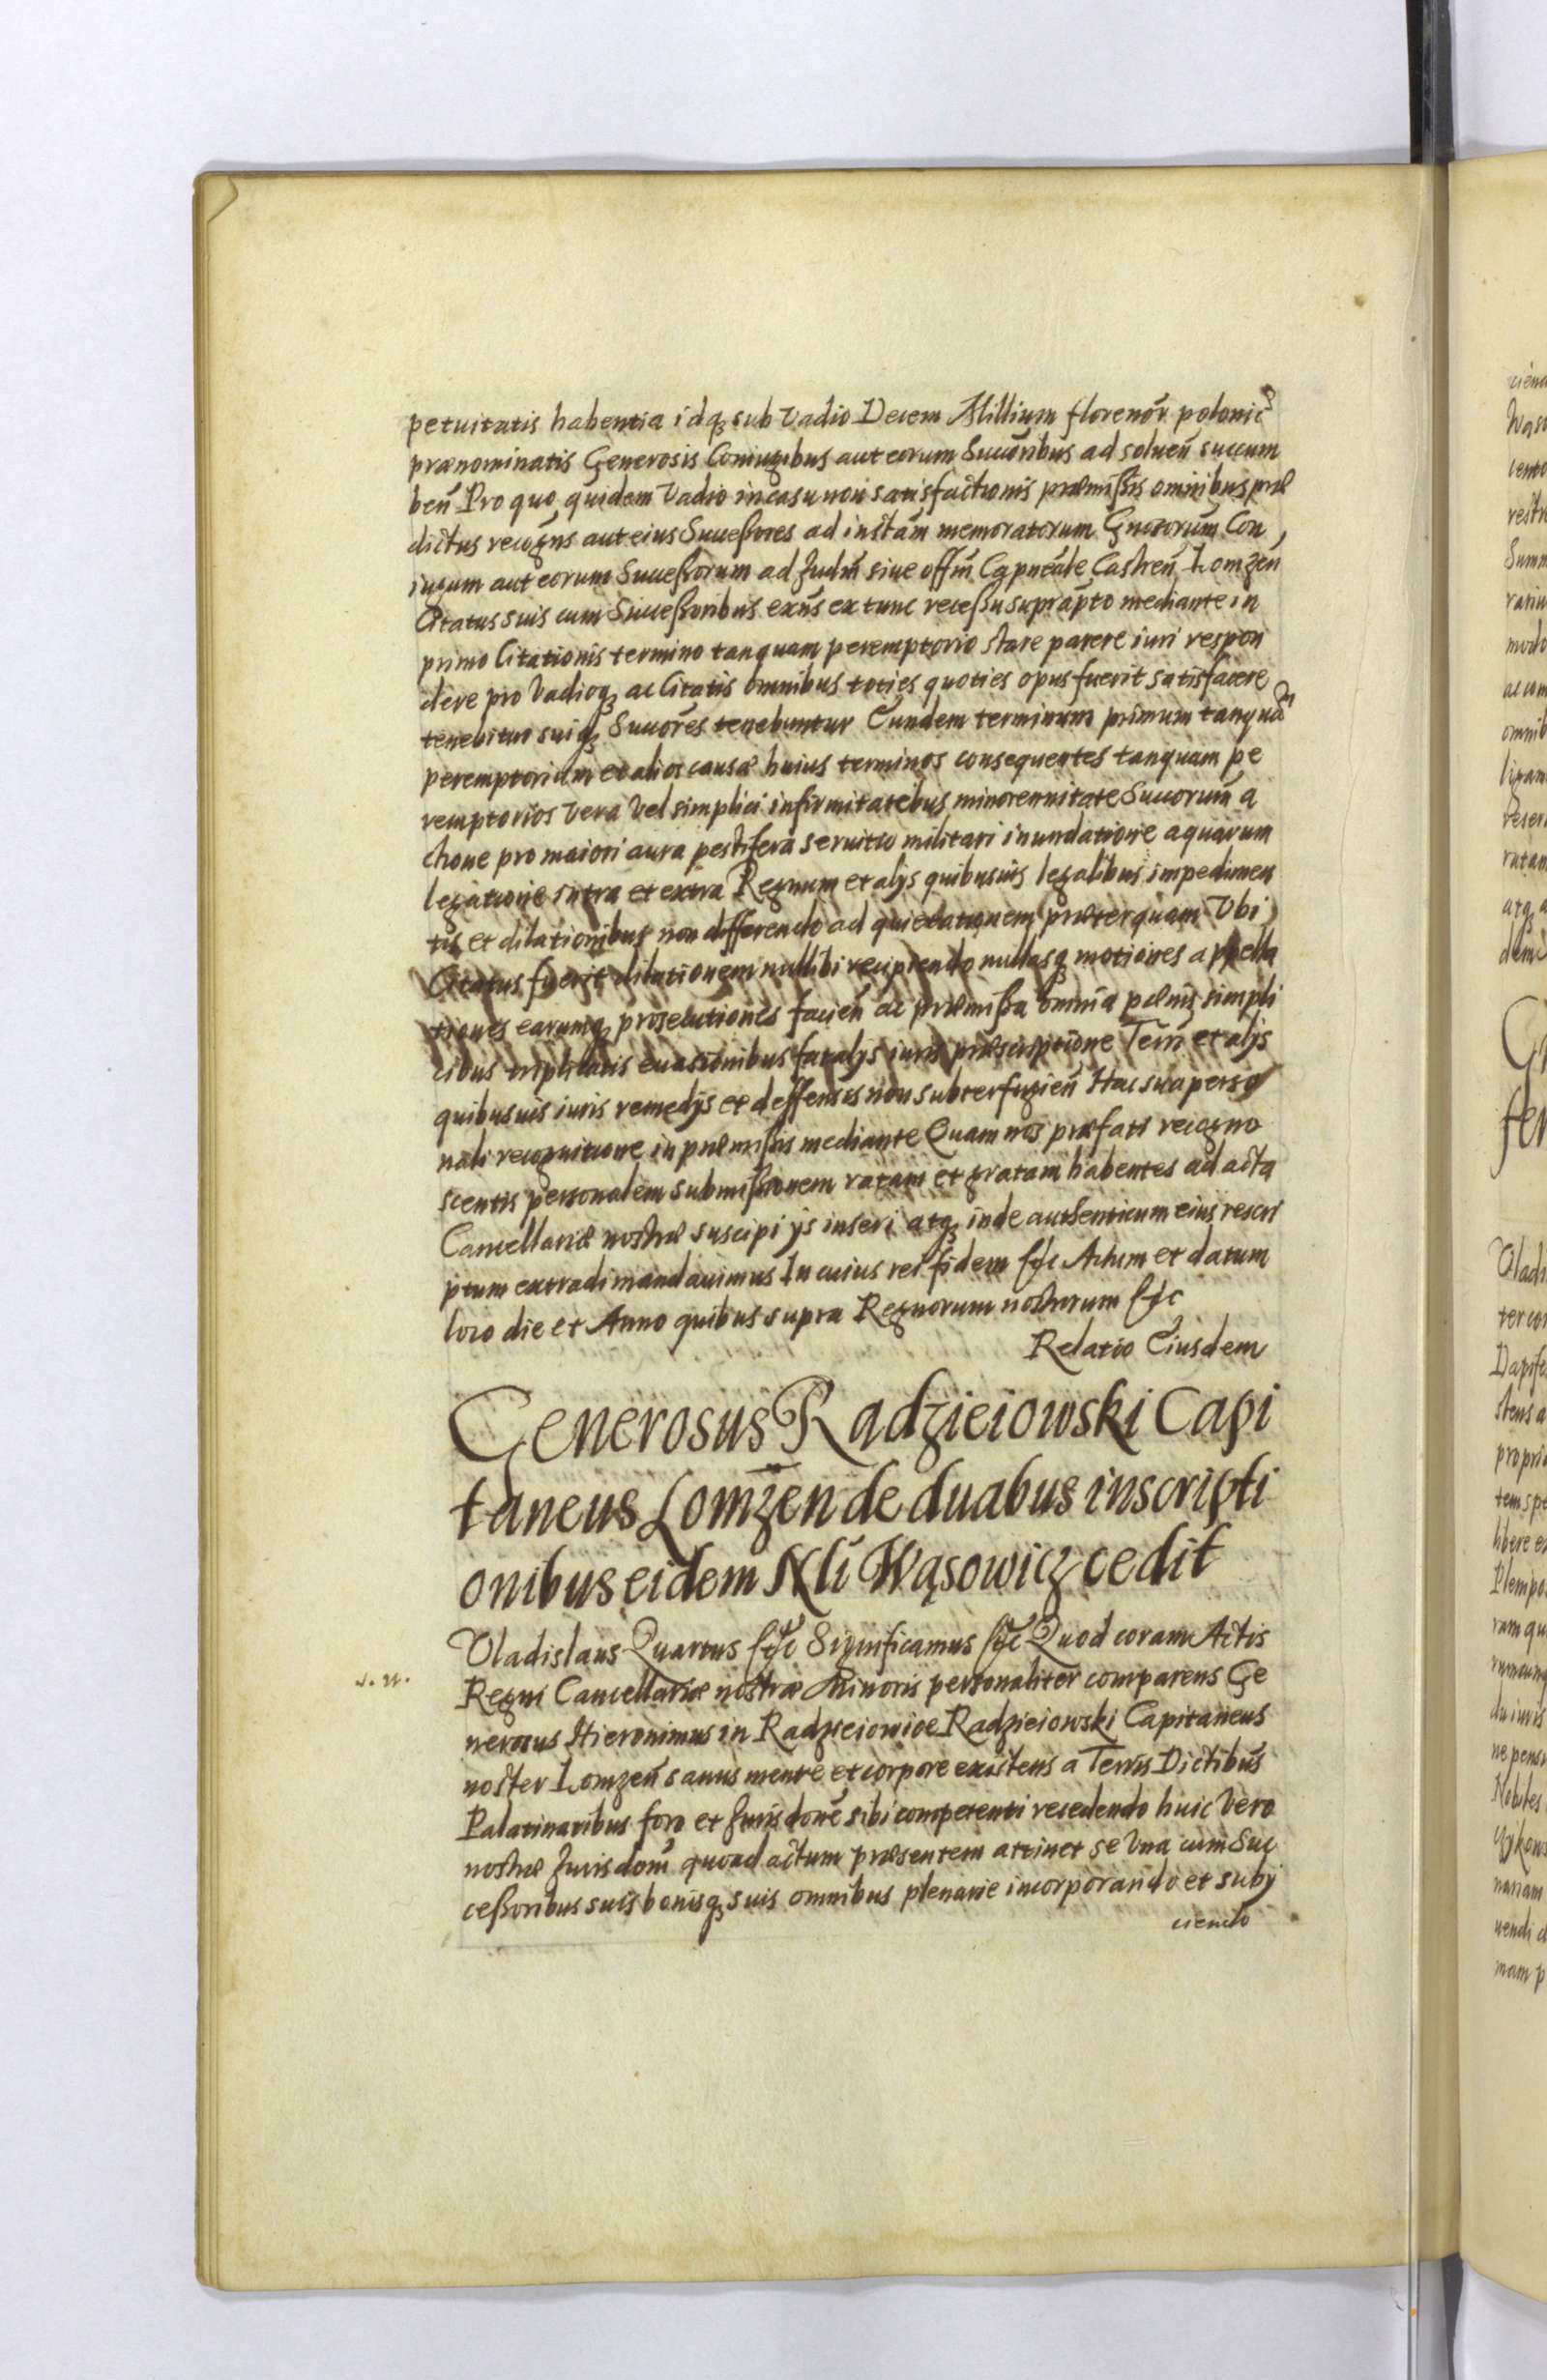 petuitatis habentia idq sub vadio Decem Millium florenor polonic
prænominatis Generosis Coniugibus aut eorum Succoribus ad soluen succum
ben Pro quo quidem vadio in casu non satisfactionis præmissis omnibus præ
dictus recogns aut eius Successores ad instam memoratorum Gnosorum Con
iugum aut eorum Successorum ad Judm siue offm Capneale Castren Lomzen
Citatus suis cum Successoribus exns ex tunc recessu suprapto mediante in
primo Citationis termino tanquam peremptorio stare parere iuri respon
dere pro vadioq ac Citatis omnibus toties quoties opus fuerit satisfacere
tenebitur suiq Succores tenebuntur Eundem terminum primum tanquam
peremptorium et alios causæ huius terminos consequentes tanquam pe
remptorios vera vel simplici infirmitatibus minorennitate Succorum a
ctione pro maiori aura pestifera seruitio militari inundatione aquarum
legatione intra et extra Regnum et alijs quibusuis legalibus impedimen
tis et dilationibus non differendo ad quietationem præterquam Vbi
Citatus fuerit dilationem nullibi recipiendo nullasq motiones appella
tiones earumq prosecutiones facien ac præmissa omnia pænis simpli
cibus triplicatis euasionibus fatalijs iuris præscriptione Terri et alijs
quibusuis iuris remedijs et deffensis non subterfugien Hac sua perso
nali recognitione in præmissis mediante Quam nos præfati recogno
scentis personalem submissionem ratam et gratam habentes ad acta
Cancellariæ nostræ suscipi ijs inseri atq inde authenticum eius rescri
ptum extradi mandauimus In cuius rei fidem etc Actum et datum
loco die et Anno quibus supra Regnorum nostrorum etc
Relatio Eiusdem
Generosus Radzieiowski Capi
taneus Lomzen de duabus inscripti
onibus eidem Nli Wąsowicz cedit
Vladislaus Quartus etc Significamus etc Quod coram Actis
Regni Cancellariæ nostræ Minoris personaliter comparens Ge
nerosus Hieronimus in Radzieiowice Radzieiowski Capitaneus
noster Lomzen sanus mente et corpore existens a Terris Dictibus
Palatinatibus foro et Jurisdone sibi competenti recedendo huic vero
nostræ Jurisdoni quoad actum præsentem attinet se vna cum Suc
cessoribus suis bonisq suis omnibus plenarie incorporando et subij
ciendo